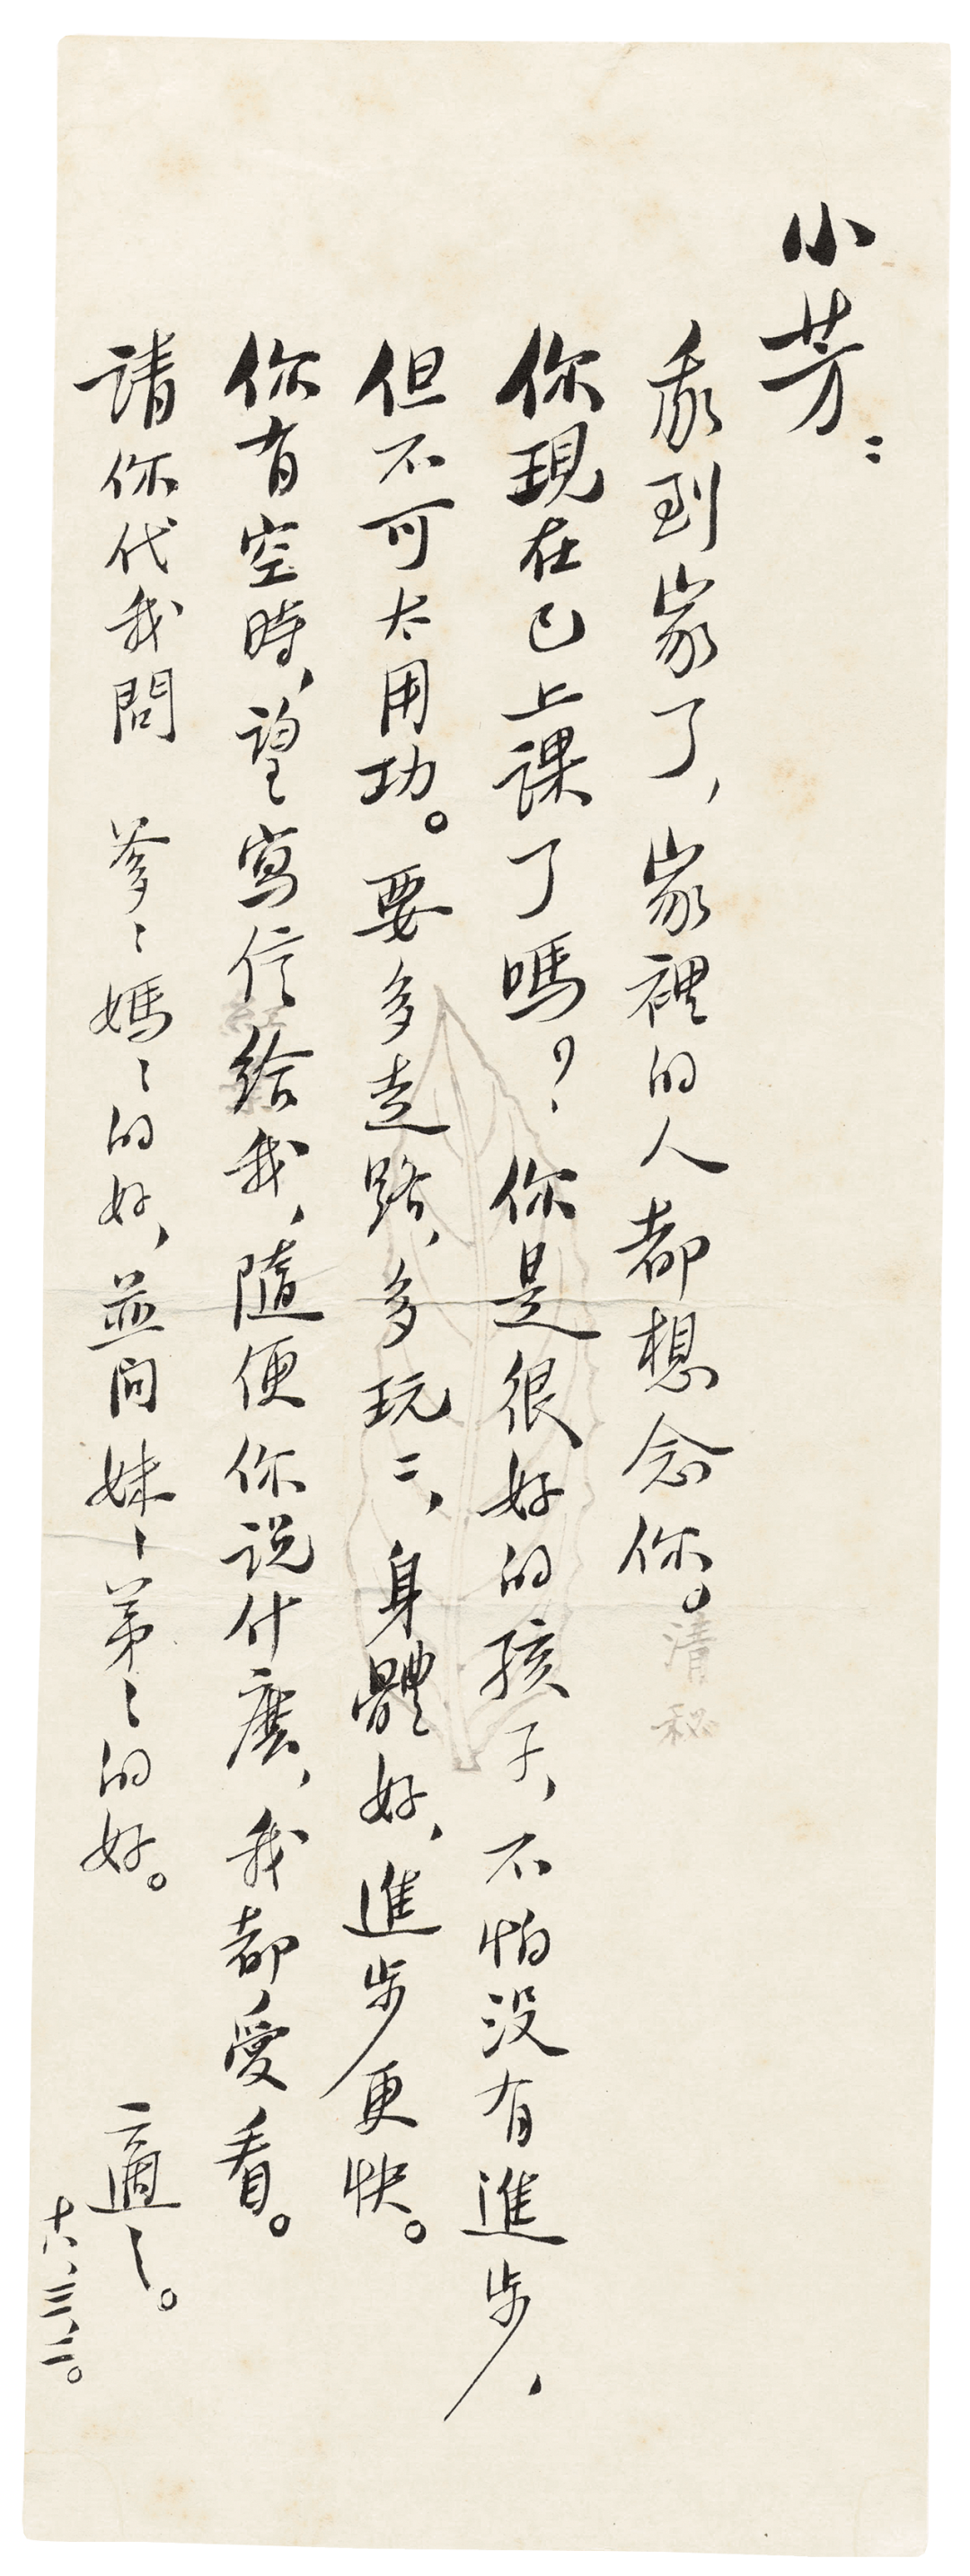 小芳：
我到家了，家裡的人都想念你。
你現在已上課了嗎？你是很好的孩子，不怕没有進步，
但不可太用功。要多走路，多玩二，身體好，進步更快。
你有空時，望寫信給我，隨便你説什麽，我都愛看。
請你代我問 爹〻媽〻的好，並问妹〻弟〻的好。
適〻。
十八，三，二。
清秘